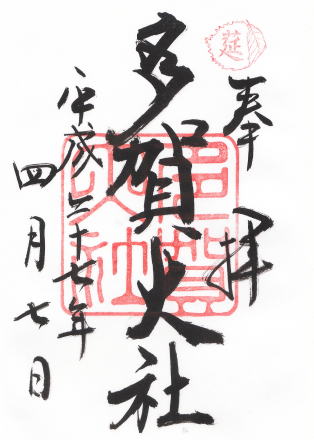 延
奉拝
多賀大社
平成二十七年
四月七日